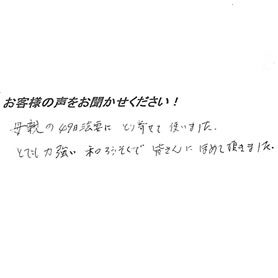 お客様の声をお聞かせください！
母親の49日法要に とり寄せて 使いました。
とても力強い 和ろうそくで 皆さんに ほめて頂きました。